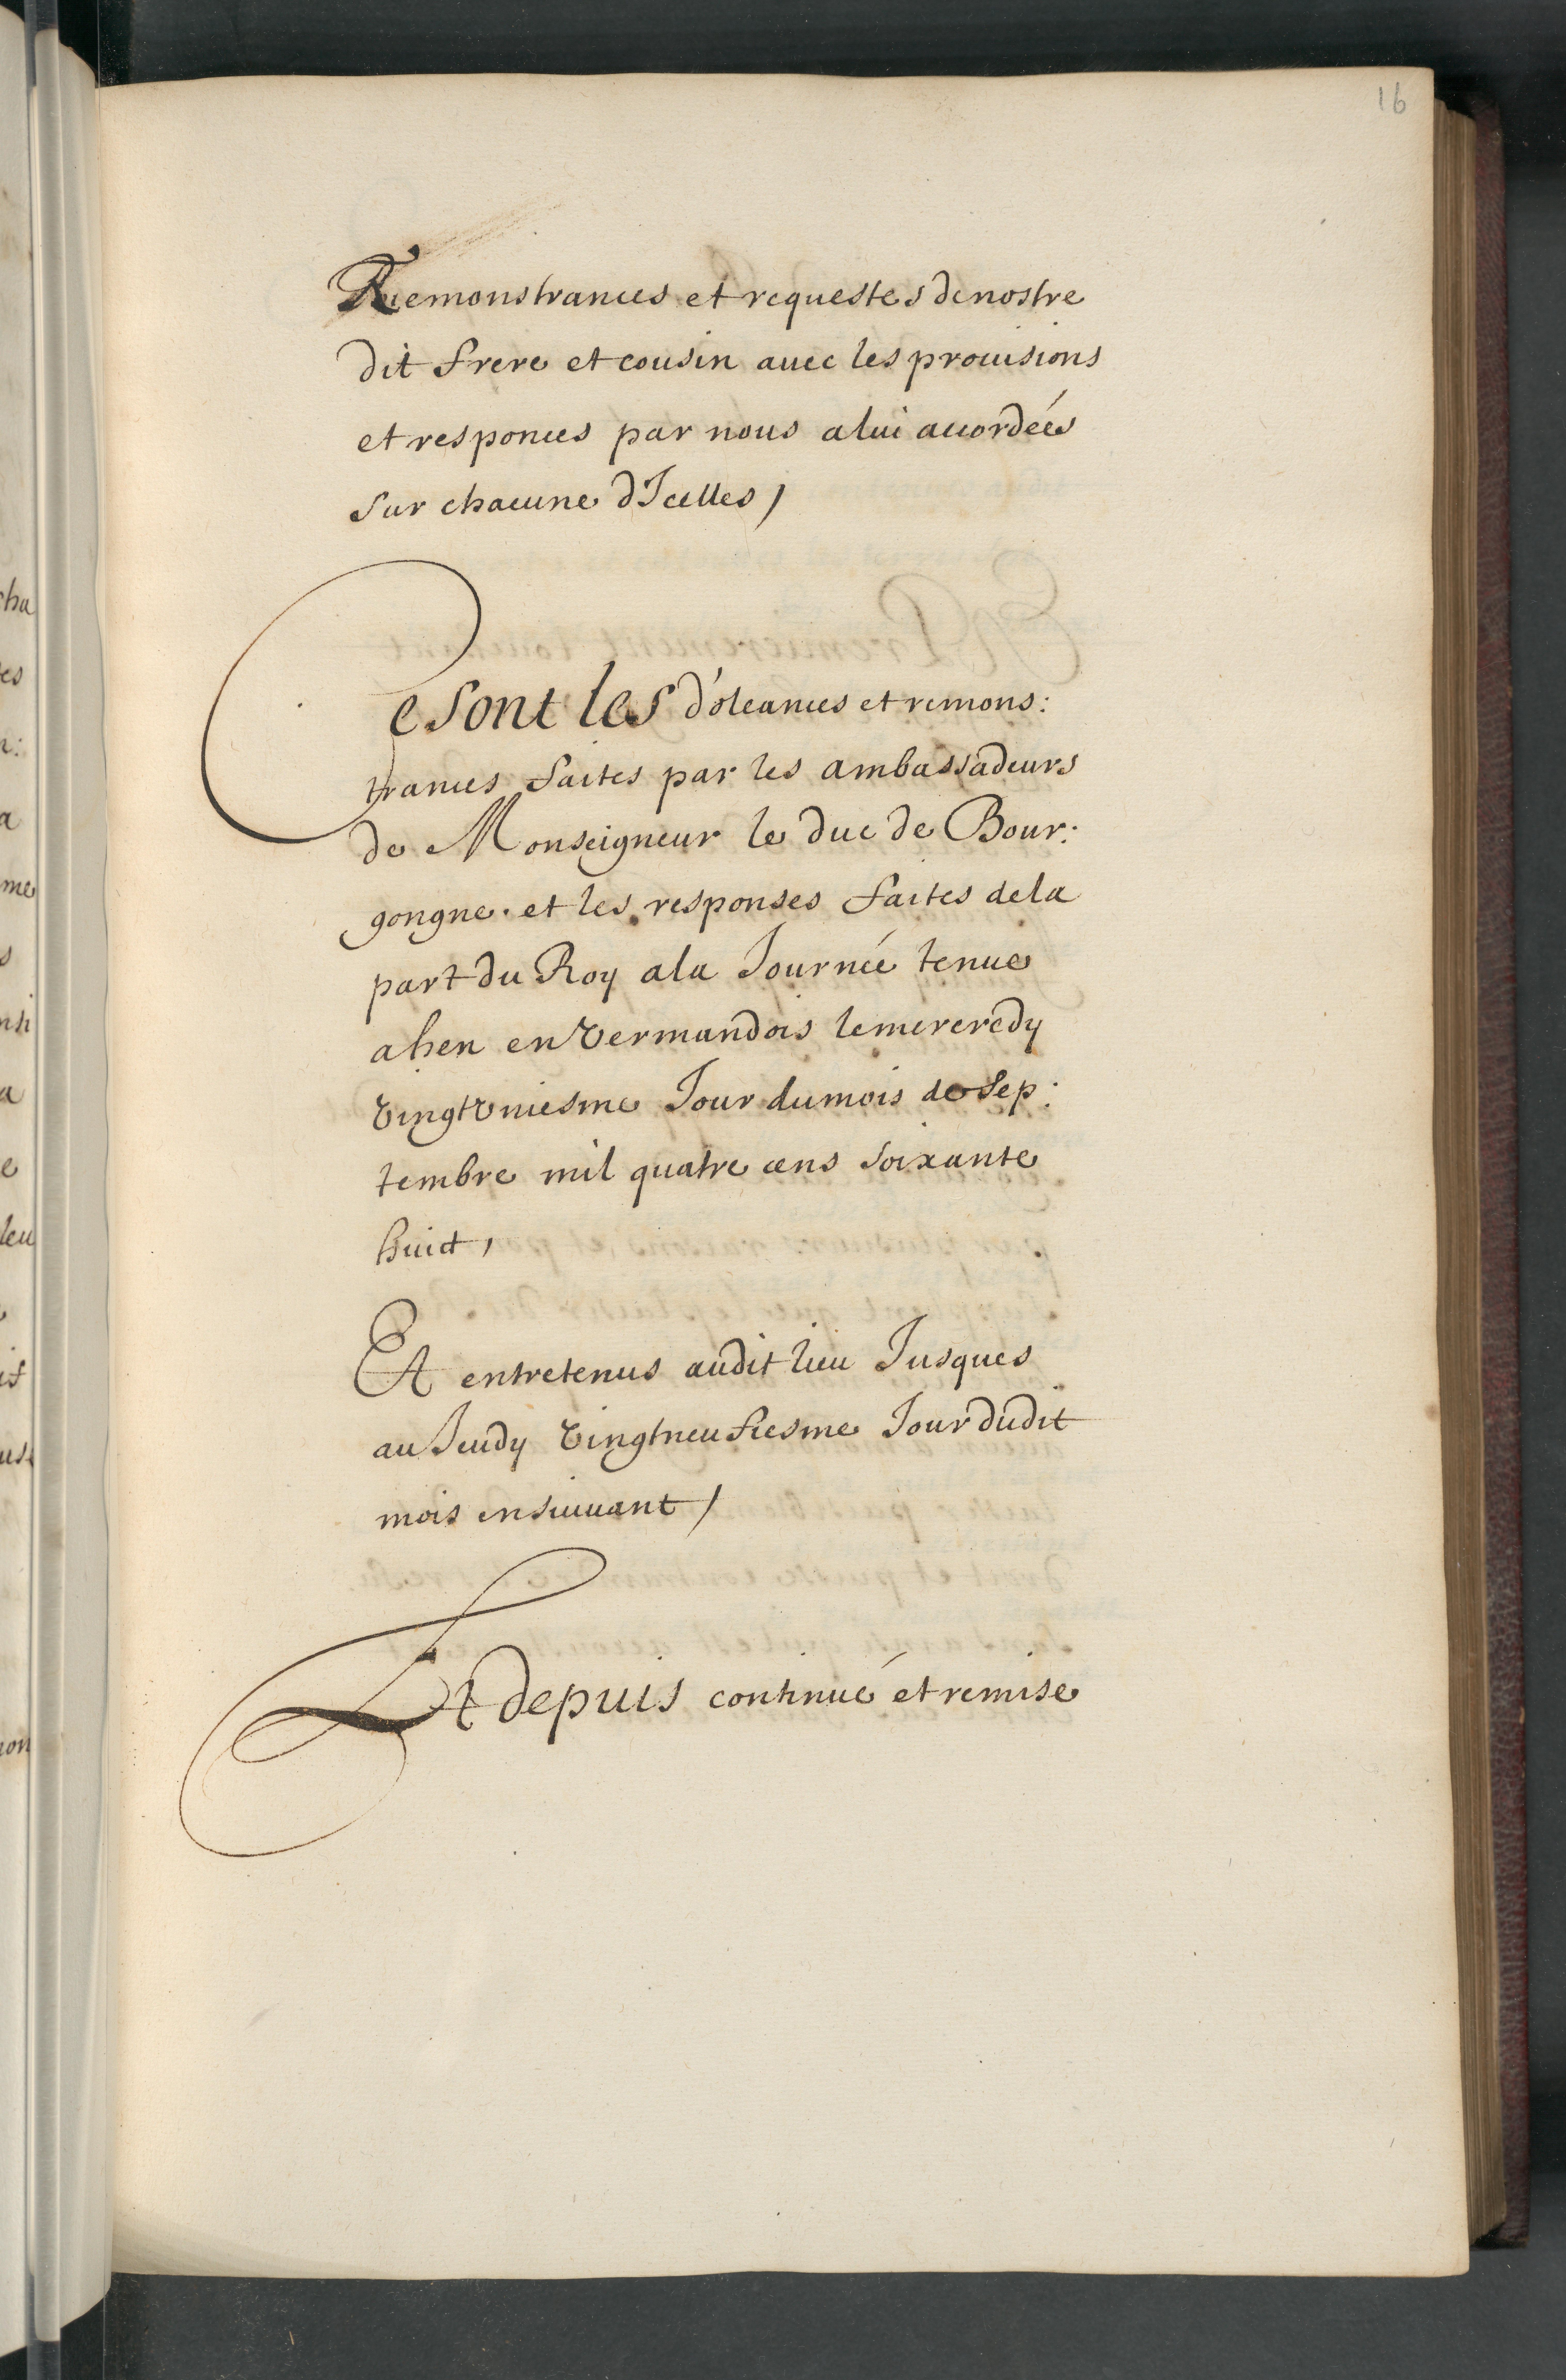 16
Remonstrances et requestes de nostre
dit frere et cousin avec les prouisions
et responces par nous a lui accordeés
sur chacune d'Icelles /
Ce sont les doleances et remons:
trances faites par les ambassadeurs
de Monseigneur le duc de Bour:
gongne. et les responses faites de la
part du Roy a la Journée tenue
a hen en Vermandois le mercredy
vingt vniesme Jour du mois de Sep:
tembre mil quatre cens soixante
huict,
Et entretenus audit lieu Jusques
au Jeudy vingtneufiesme Jour dudit
mois ensuiuant /
Et depuis continué et remise